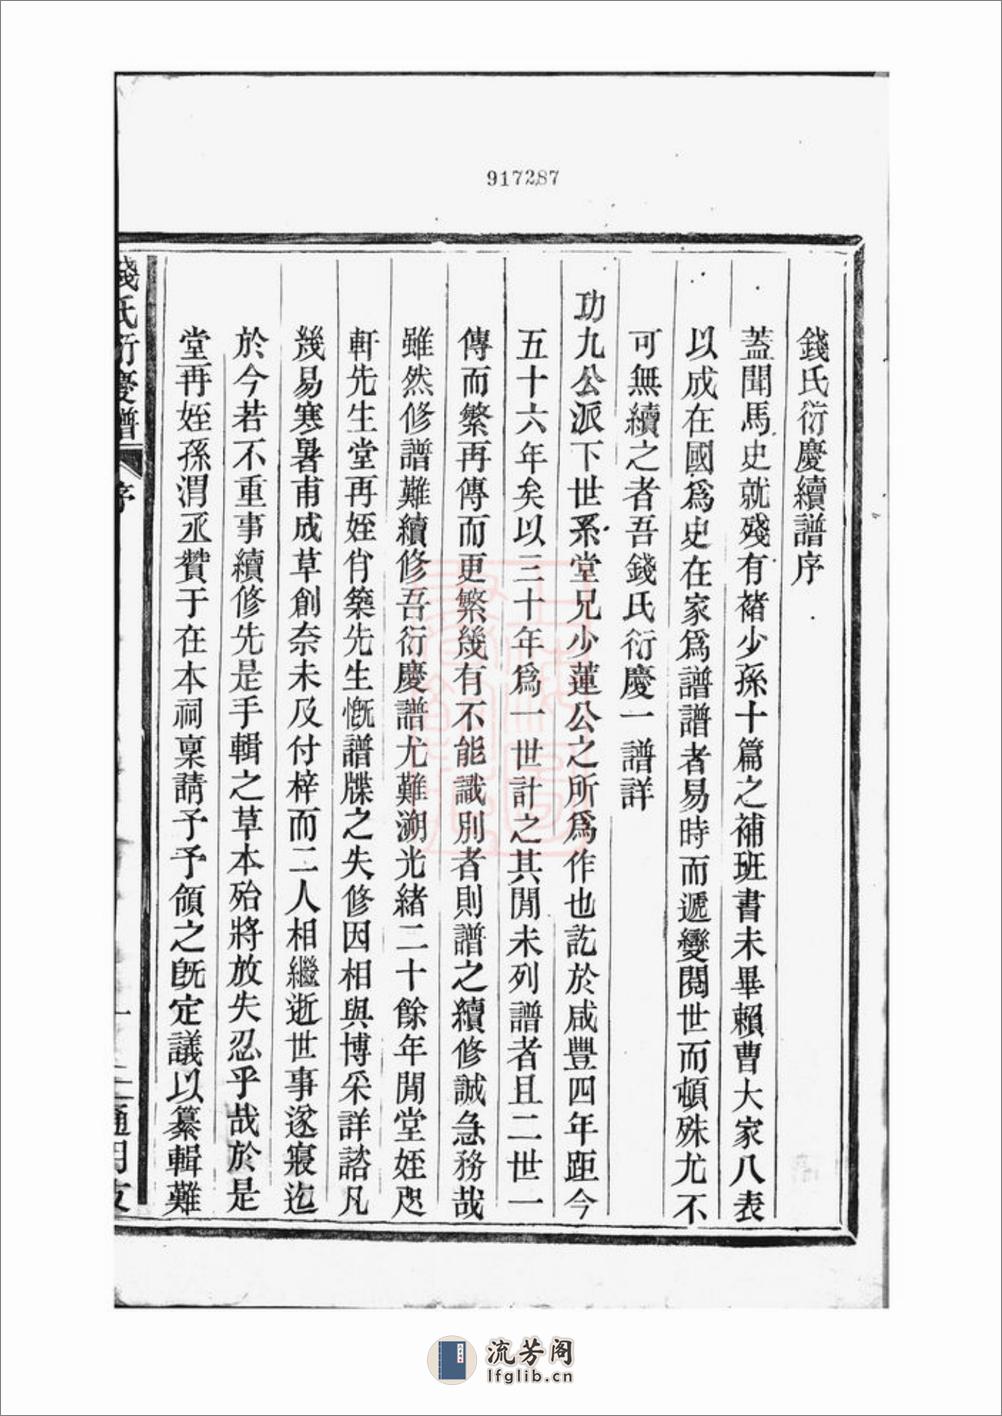 917287
錢氏衍慶續譜序
蓋聞馬史就殘有褚少孫十篇之補班書未畢賴曹大家八表
以成在國爲史在家爲譜譜者易時而遞變閱世而頓殊尤不
可無續之者吾錢氏衍慶一譜詳
功九公派下世系堂兄少蓮公之所爲作也訖於咸豐四年距今
五十六年矣以三十年爲一世計之其閒未列譜者且二世一
傳而繁再傳而更繁幾有不能識別者則譜之續修誠急務哉
雖然修譜難續修吾衍慶譜尤難溯光緒二十餘年閒堂姪
軒先生堂再姪肖築先生慨譜牒之失修因相與博采詳諮凡
幾易寒暑甫成草創奈未及付梓而二人相繼逝世事遂寢迄
於今若不重事續修先是手輯之草本殆將放失忍乎哉於是
堂再姪孫渭丞贊于在本祠稟請予予領之旣定議以纂輯難
錢氏衍慶譜 序 一
流芳阁
lfglib.cn